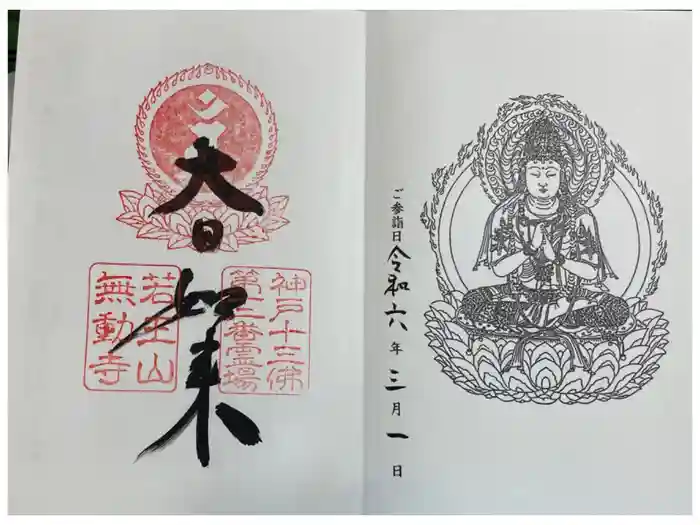 ご参詣日 令和六年三月一日
大日如来
神戸十三佛
第二番霊場
若王山
無動寺